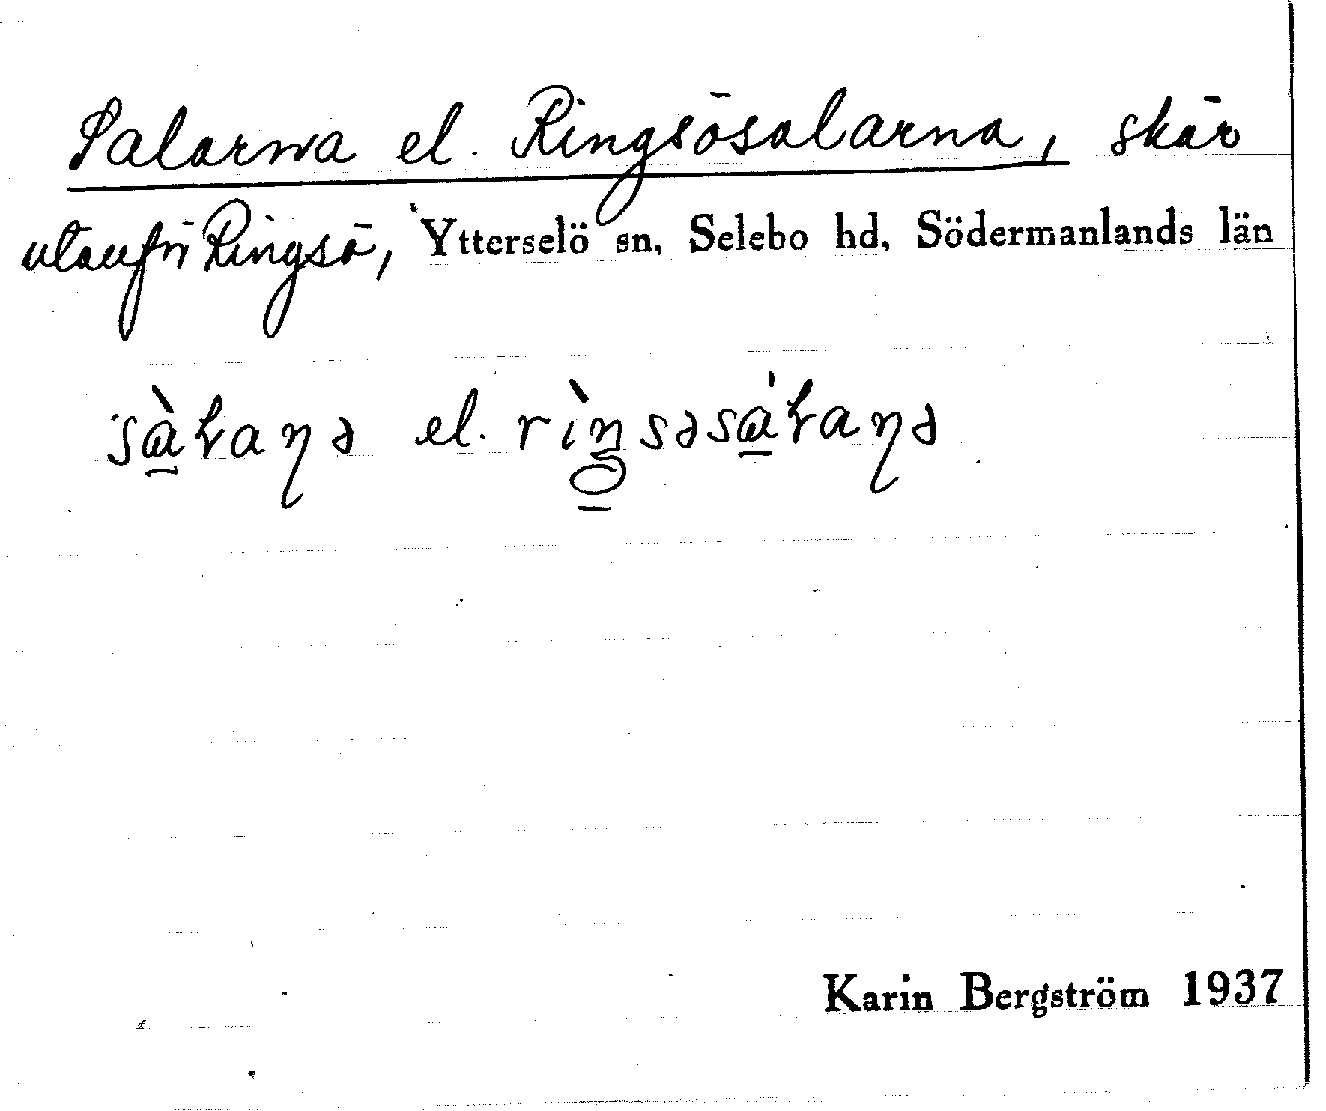 Salarna el. Ringsösalarna, skär
utanför Ringsö, Ytterselö sn, Selebo hd, Södermanlands län
el.
Karin Bergström 1937